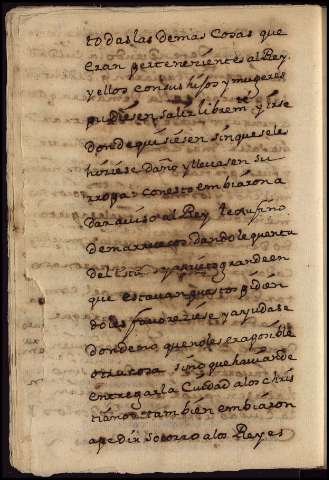 todas las demas Cosas que
eran pertenecientes al Rey.
y ellos con sus hijos y mugeres
pudiesen salir librem.te y irse
donde quisiesen sin que se les
hiciese daño y llevasen su
rropa: con esto embiaron a
dar aviso al Rey
de marruecos dandole quenta
del estado y aprieto grande en
que estavan puestos pidien
doles favoreciese y ayudase
donde no que no les era posible
otra cosa sino que havian de
entregar la Ciudad a los Chris
tianos: tambien embiaron
a pedir socorro a los Reyes